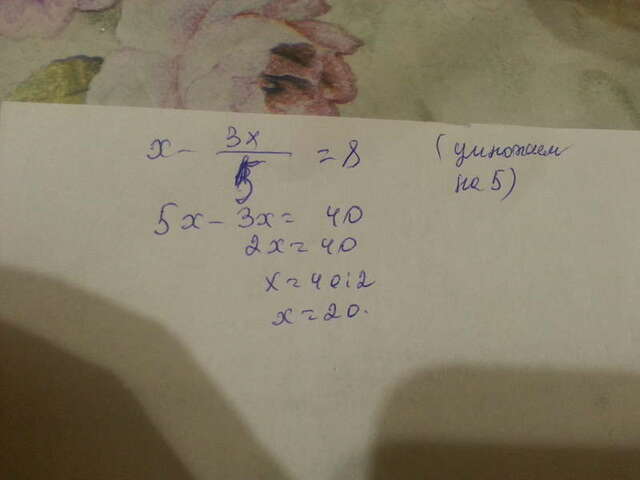 x - 3x/5 = 8 (умножаем на 5)
5x - 3x = 40
2x = 40
x = 40:2
x = 20.